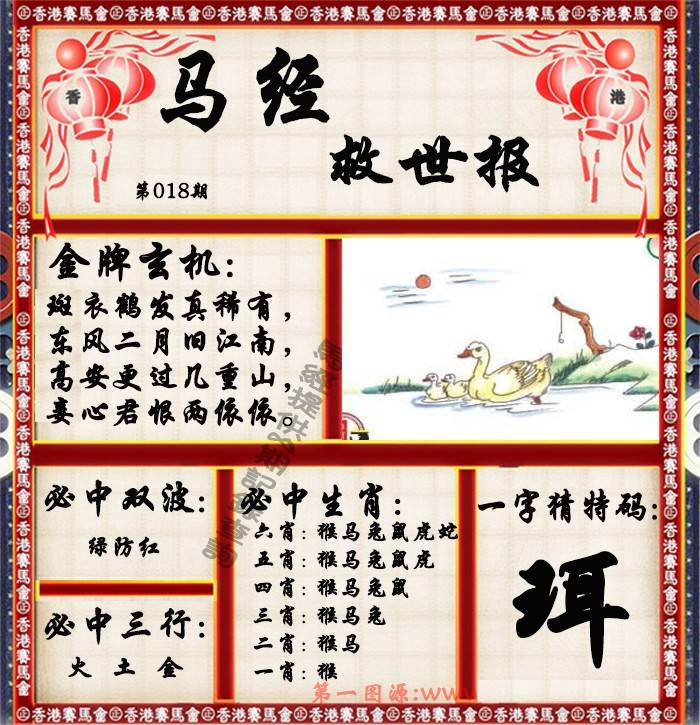 香港賽馬會
香
港
马经
救世报
第018期
金牌玄机：
斑衣鹤发真稀有，
东风二月旧江南，
高安更过几重山，
妾心君恨两依依。
必中双波：
绿防红
必中三行：
火土金
必中生肖：
六肖：猴马兔鼠虎蛇
五肖：猴马兔鼠虎
四肖：猴马兔鼠
三肖：猴马兔
二肖：猴马
一肖：猴
一字猜特码：
珥
第一图源:www